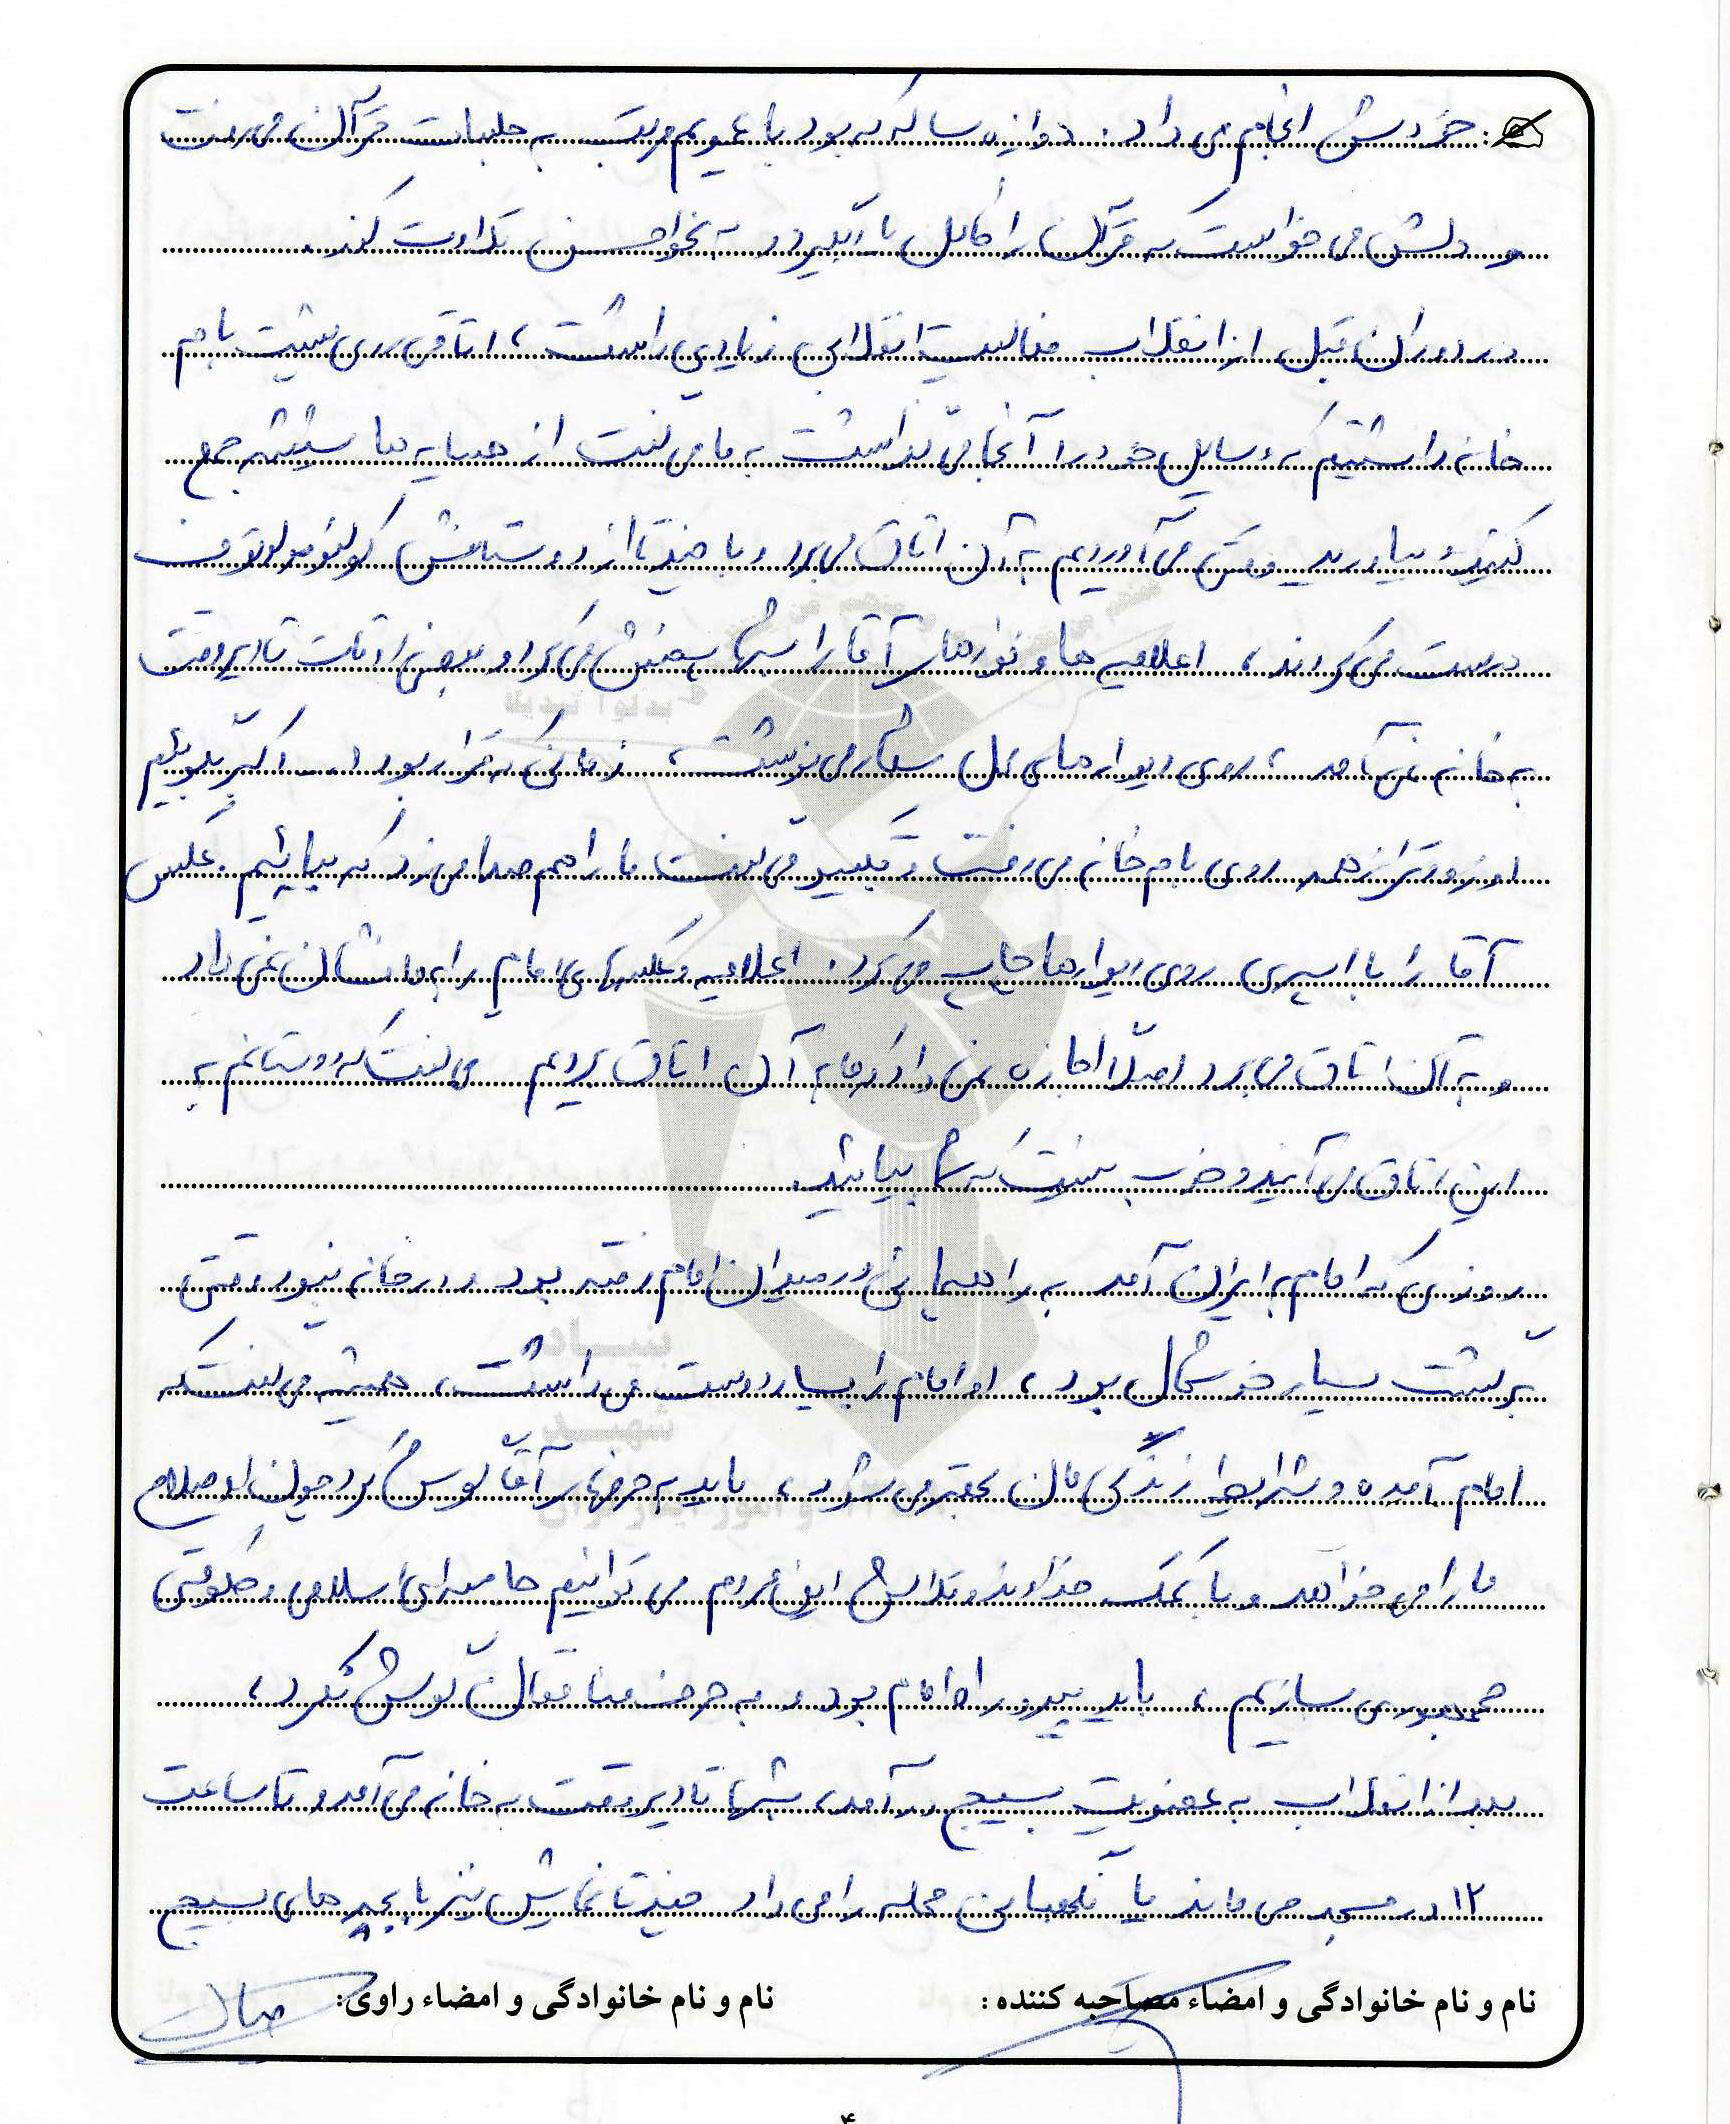 خودش انجام می داد. دوازده ساله که بود با عمویم مرتب به جلسات قرآن می رفت
و دلش می خواست که قرآن را کامل یاد بگیرد و به نحو احسن تلاوت کند.
در دوران قبل از انقلاب فعالیت انقلابی زیادی داشت، اتاقی روی پشت بام
خانه داشتیم که وسایل خود را آنجا می گذاشت به ما می گفت از همسایه ها شیشه جمع
کنید و بیاورید وقتی می آوردیم به آن اتاق می برد و با چند تا از دوستانش کوکتل مولوتوف
درست می کردند، اعلامیه ها و نوارهای آقا را شبها پخش می کرد و بعضی اوقات تا دیروقت
به خانه نمی آمد، روی دیوارهای محل شعار می نوشت، زمانی که قرار بود ا... اکبر بگوئیم
او زودتر از همه روی بام خانه می رفت و تکبیر می گفت ما را هم صدا می زد که بیائیم. عکس
آقا را با اسپری روی دیوارها چاپ می کرد. اعلامیه و عکسهای امام را به ما نشان نمی داد
و به آن اتاق می برد اصلاً اجازه نمی داد که ما به آن اتاق برویم می گفت که دوستانم به
این اتاق می آیند و خوب نیست که شما بیائید.
روزی که امام به ایران آمد به راهپیمائی در میدان امام رفته بود و در خانه نبود وقتی
برگشت بسیار خوشحال بود، او امام را بسیار دوست می داشت، همیشه می گفت که
امام آمده و شرایط زندگی مان بهتر می شود، باید به حرفهای آقا گوش کرد چون او صلاح
ما را می خواهد و با کمک خداوند و تلاش این مردم می توانیم جامعه ای اسلامی و حکومتی
جمهوری سازیم، باید پیرو راه امام بود و به حرف منافقان گوش نکرد،
بعد از انقلاب به عضویت بسیج در آمد، شبها تا دیروقت به خانه می آمد و تا ساعت
۱۲ در مسجد می ماند یا نگهبانی محله را می داد چند تا نمایش نیز با بچه های بسیج
نام و نام خانوادگی و امضاء مصاحبه کننده : نام و نام خانوادگی و امضاء راوی:
۴